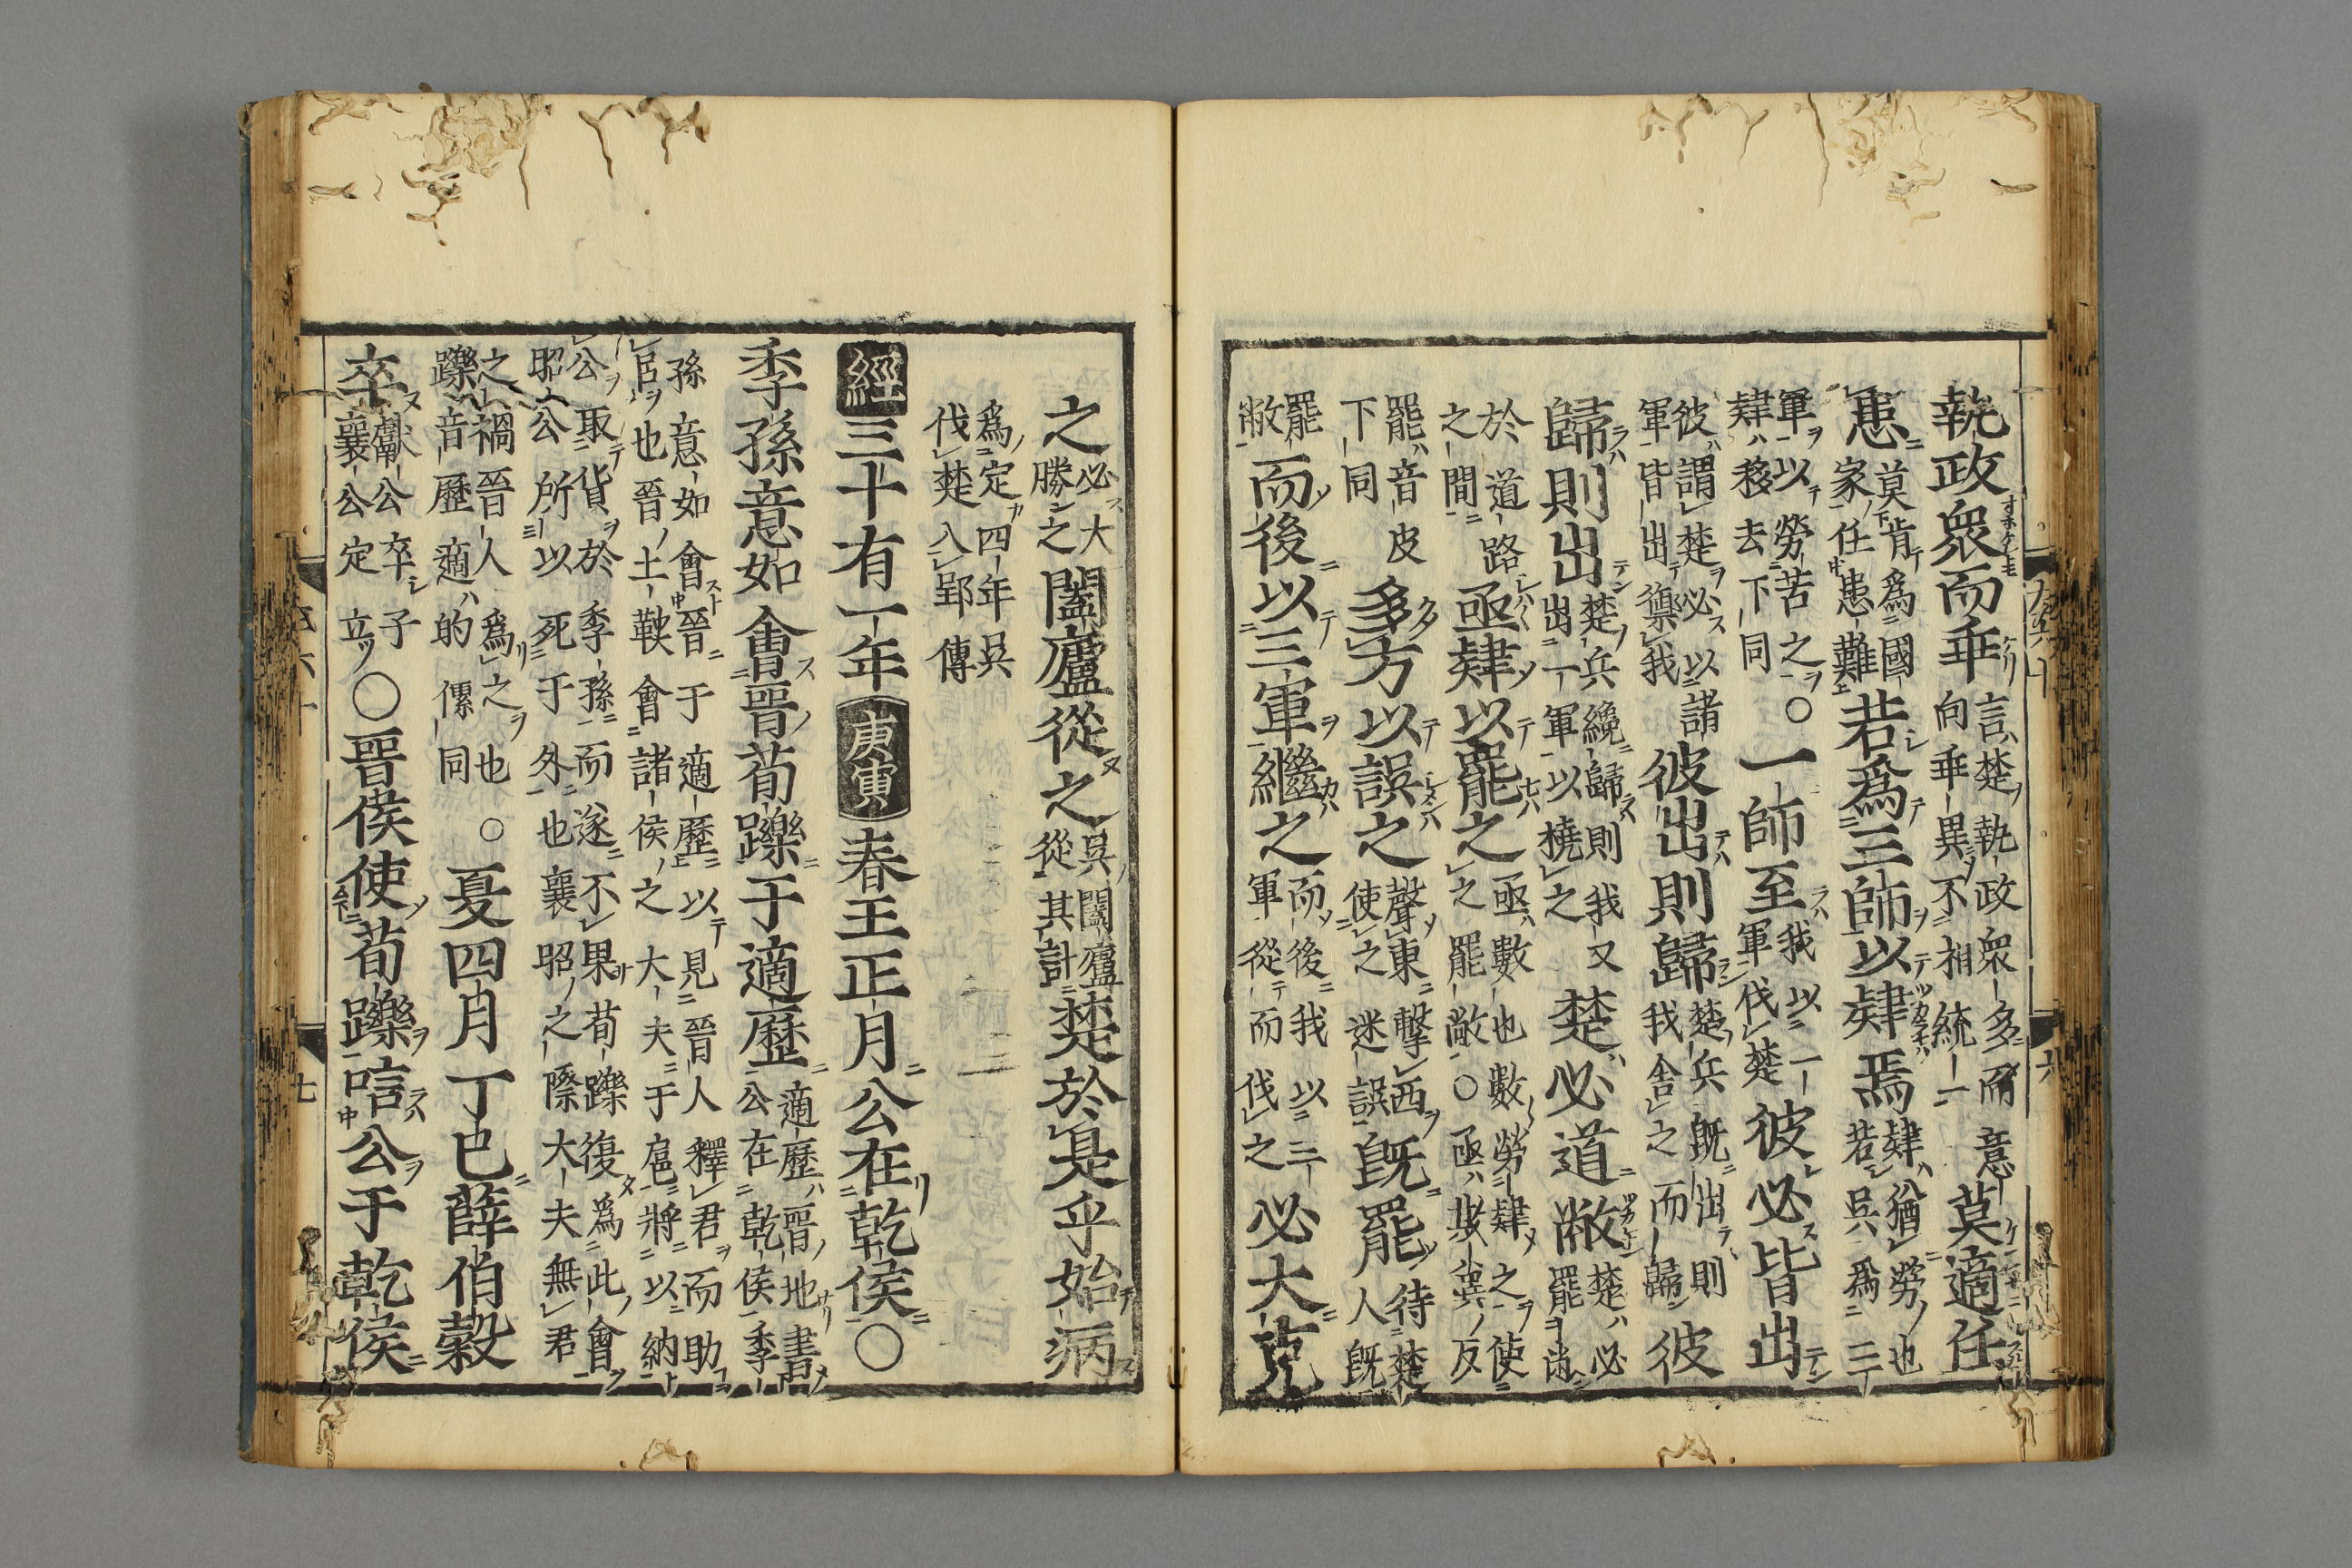 執政衆而乖言楚執政衆多而意向乖異不相統一莫適任
患莫肯為國家任患難若為三師以肄焉肄猶勞也若吳為三
軍以勞苦之○肄移去下同一師至我以一軍伐楚彼必皆出
彼謂楚必以諸軍皆出禦我彼出則歸楚兵既出則我舍之而歸彼
歸則出楚兵纔歸則我又出一軍以撓之楚必道敝楚必罷尚
於道路之間亟肄以罷之亟數也數勞肄之使之罷敝○亟欺冀反
罷音皮下同多方以誤之聲東擊西使之迷誤既罷待楚人既
罷敝而後以三軍繼之而後我以三軍從而伐之必大克
之必大勝之闔廬從之吳闔廬從其計楚於是乎始病
為定四年吳伐楚入郢傳
經三十有一年庚寅春王正月公在乾侯○
季孫意如會晉荀躒于適歷適歷晉地書公在乾侯季
孫意如會晉于適歷以見晉人釋君而助臣也晉士鞅會諸侯之大夫于扈將以納
公取貨於季孫而遂不果荀躒復為此會昭公所以死于外也襄昭之際大夫無君
之禍晉人為之也○躒音歷適的傫同夏四月丁巳薛伯穀
卒獻公卒子襄公定立○晉侯使荀躒唁公于乾侯
六
七